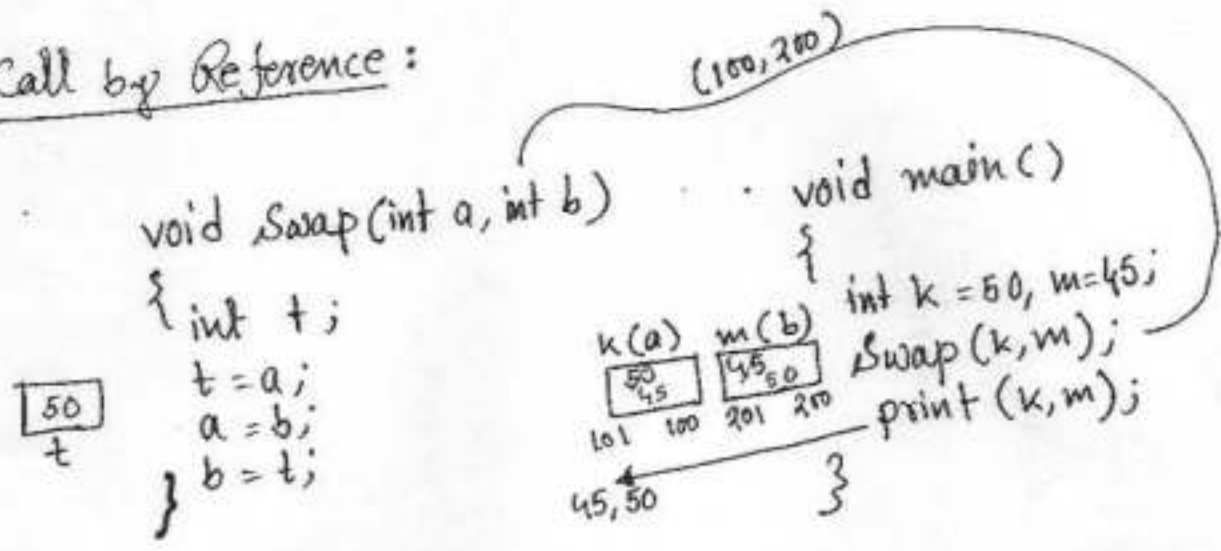 Call by Reference:
(100, 200)
void Swap(int a, int b)
{ int t;
t = a;
a = b;
} b = t;
50
t
void main()
{
int k = 50, m=45;
Swap(k,m);
print (k,m);
}
k(a) m(b)
50 45 45 50
101 100 201 200
45, 50